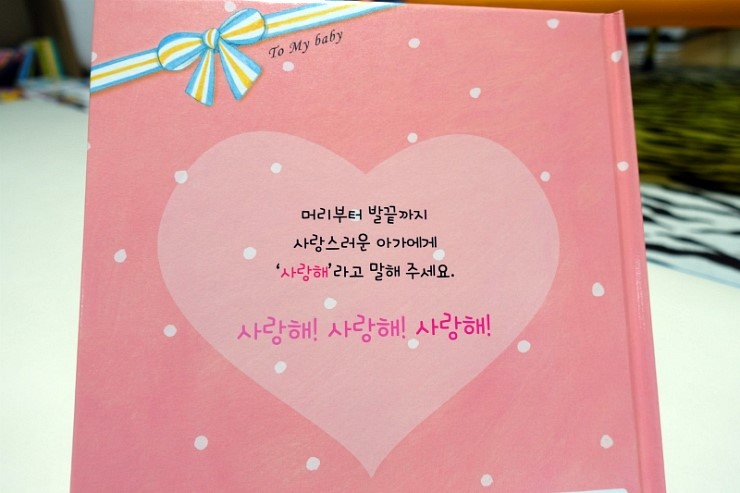 To My baby
머리부터 발끝까지
사랑스러운 아가에게
‘사랑해’라고 말해 주세요.
사랑해! 사랑해! 사랑해!